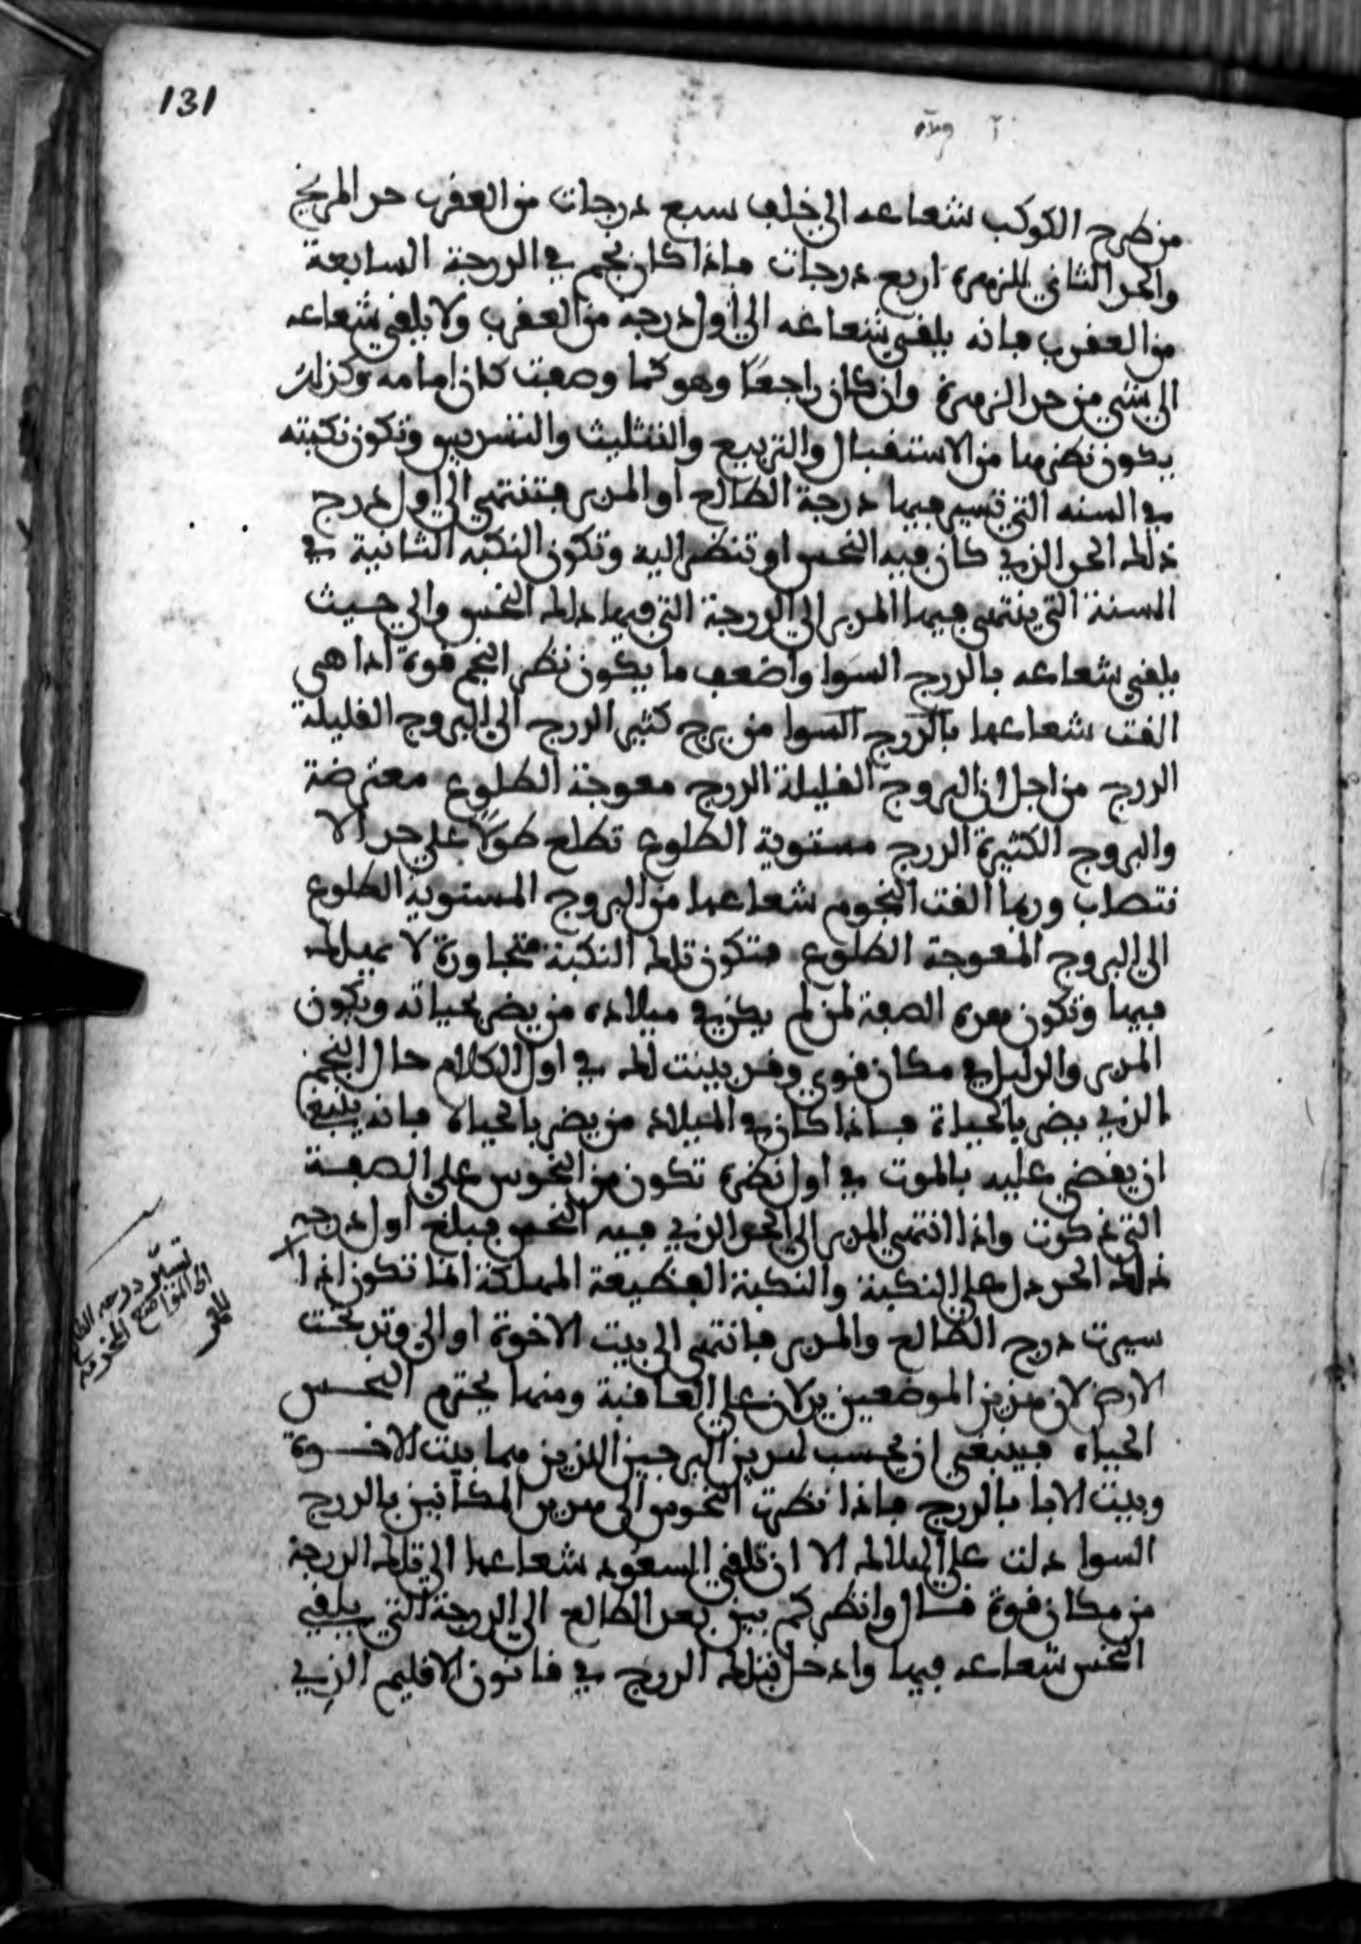 131
من طرح الكوكب شعاعه الى خلف سبع درجات من العقرب حد المريخ
والحد الثاني للزهرة اربع درجات فاذا كان نجم في الدرجة السابعة
من العقرب فانه يلقى شعاعه الى اول درجة من العقرب ولا يلقى شعاعه
الى شي من حد الزهرة وان كان راجعًا وهو كما وصفت كان امامه وكذلك
يكون نظرها من الاستقبال والتربيع والتثليث والتسديس وتكون نكبته
في السنه التي تسير فيها درجة الطالع او المدبر فتنتهي الى اول درج
ذلك الحد الذي كان فيه النحس او تنظر اليه وتكون النكبه الثانية في
السنة التي ينتهي فيها المدبر الى الدرجة التي فيها ذلك النحس والى حيث
يلقى شعاعه بالدرج السوا واضعف ما يكون نظر النجم قوة اذا هي
القت شعاعها بالدرج السوا من برج كثير الدرج الى البروج القليلة
الدرج من اجل ان البروج القليلة الدرج معوجة الطلوع معترضة
والبروج الكثيرة الدرج مستوية الطلوع تطلع طولا على حد الا
نتصاب وربما القت النجوم شعاعها من البروج المستوية الطلوع
الى البروج المعوجة الطلوع فتكون تلك النكبة متجاوزة لا يهلك
فيها وتكون هذه الصفة لمن لم يكن في ميلاده من يضر بحياته ويكون
المدبر والدليل في مكان قوي وقد بينت لك في اول الكلام حال النجم
الذي يضر بالحياة فاذا كان في الميلاد من يضر بالحياة فانه ينبغي
ان يقضى عليه بالموت في اول نظرة تكون من النحوس على الصفة
التي ذكرت واذا انتهى المدبر الى الحد الذي فيه النحس فبلغ اول درجه
ذلك الحد دل على النكبة والنكبة العظيمة المهلكة انما تكون اذا
سيرت درج الطالع والمدبر فانتهى الى بيت الاخوة او الى وتد تحت
الارض لان هذين الموضعين يدلان على العاقبة ومنهما يخترم النحس
الحياه فينبغي ان يحسب لهذين البرجين اللذين هما بيت الاخوة
وبيت الابا بالدرج فاذا نظرت النحوس الى هذين المكانين بالدرج
السوا دلت على الهلاك الا ان تلقي السعود شعاعها الى تلك الدرجة
من مكان قوة قال وانظر كم بين بعد الطالع الى الدرجة التي يلقي
النحس شعاعه فيها وادخل بتلك الدرج في قانون الاقليم الذي
تسيير درجه
الى المواضع